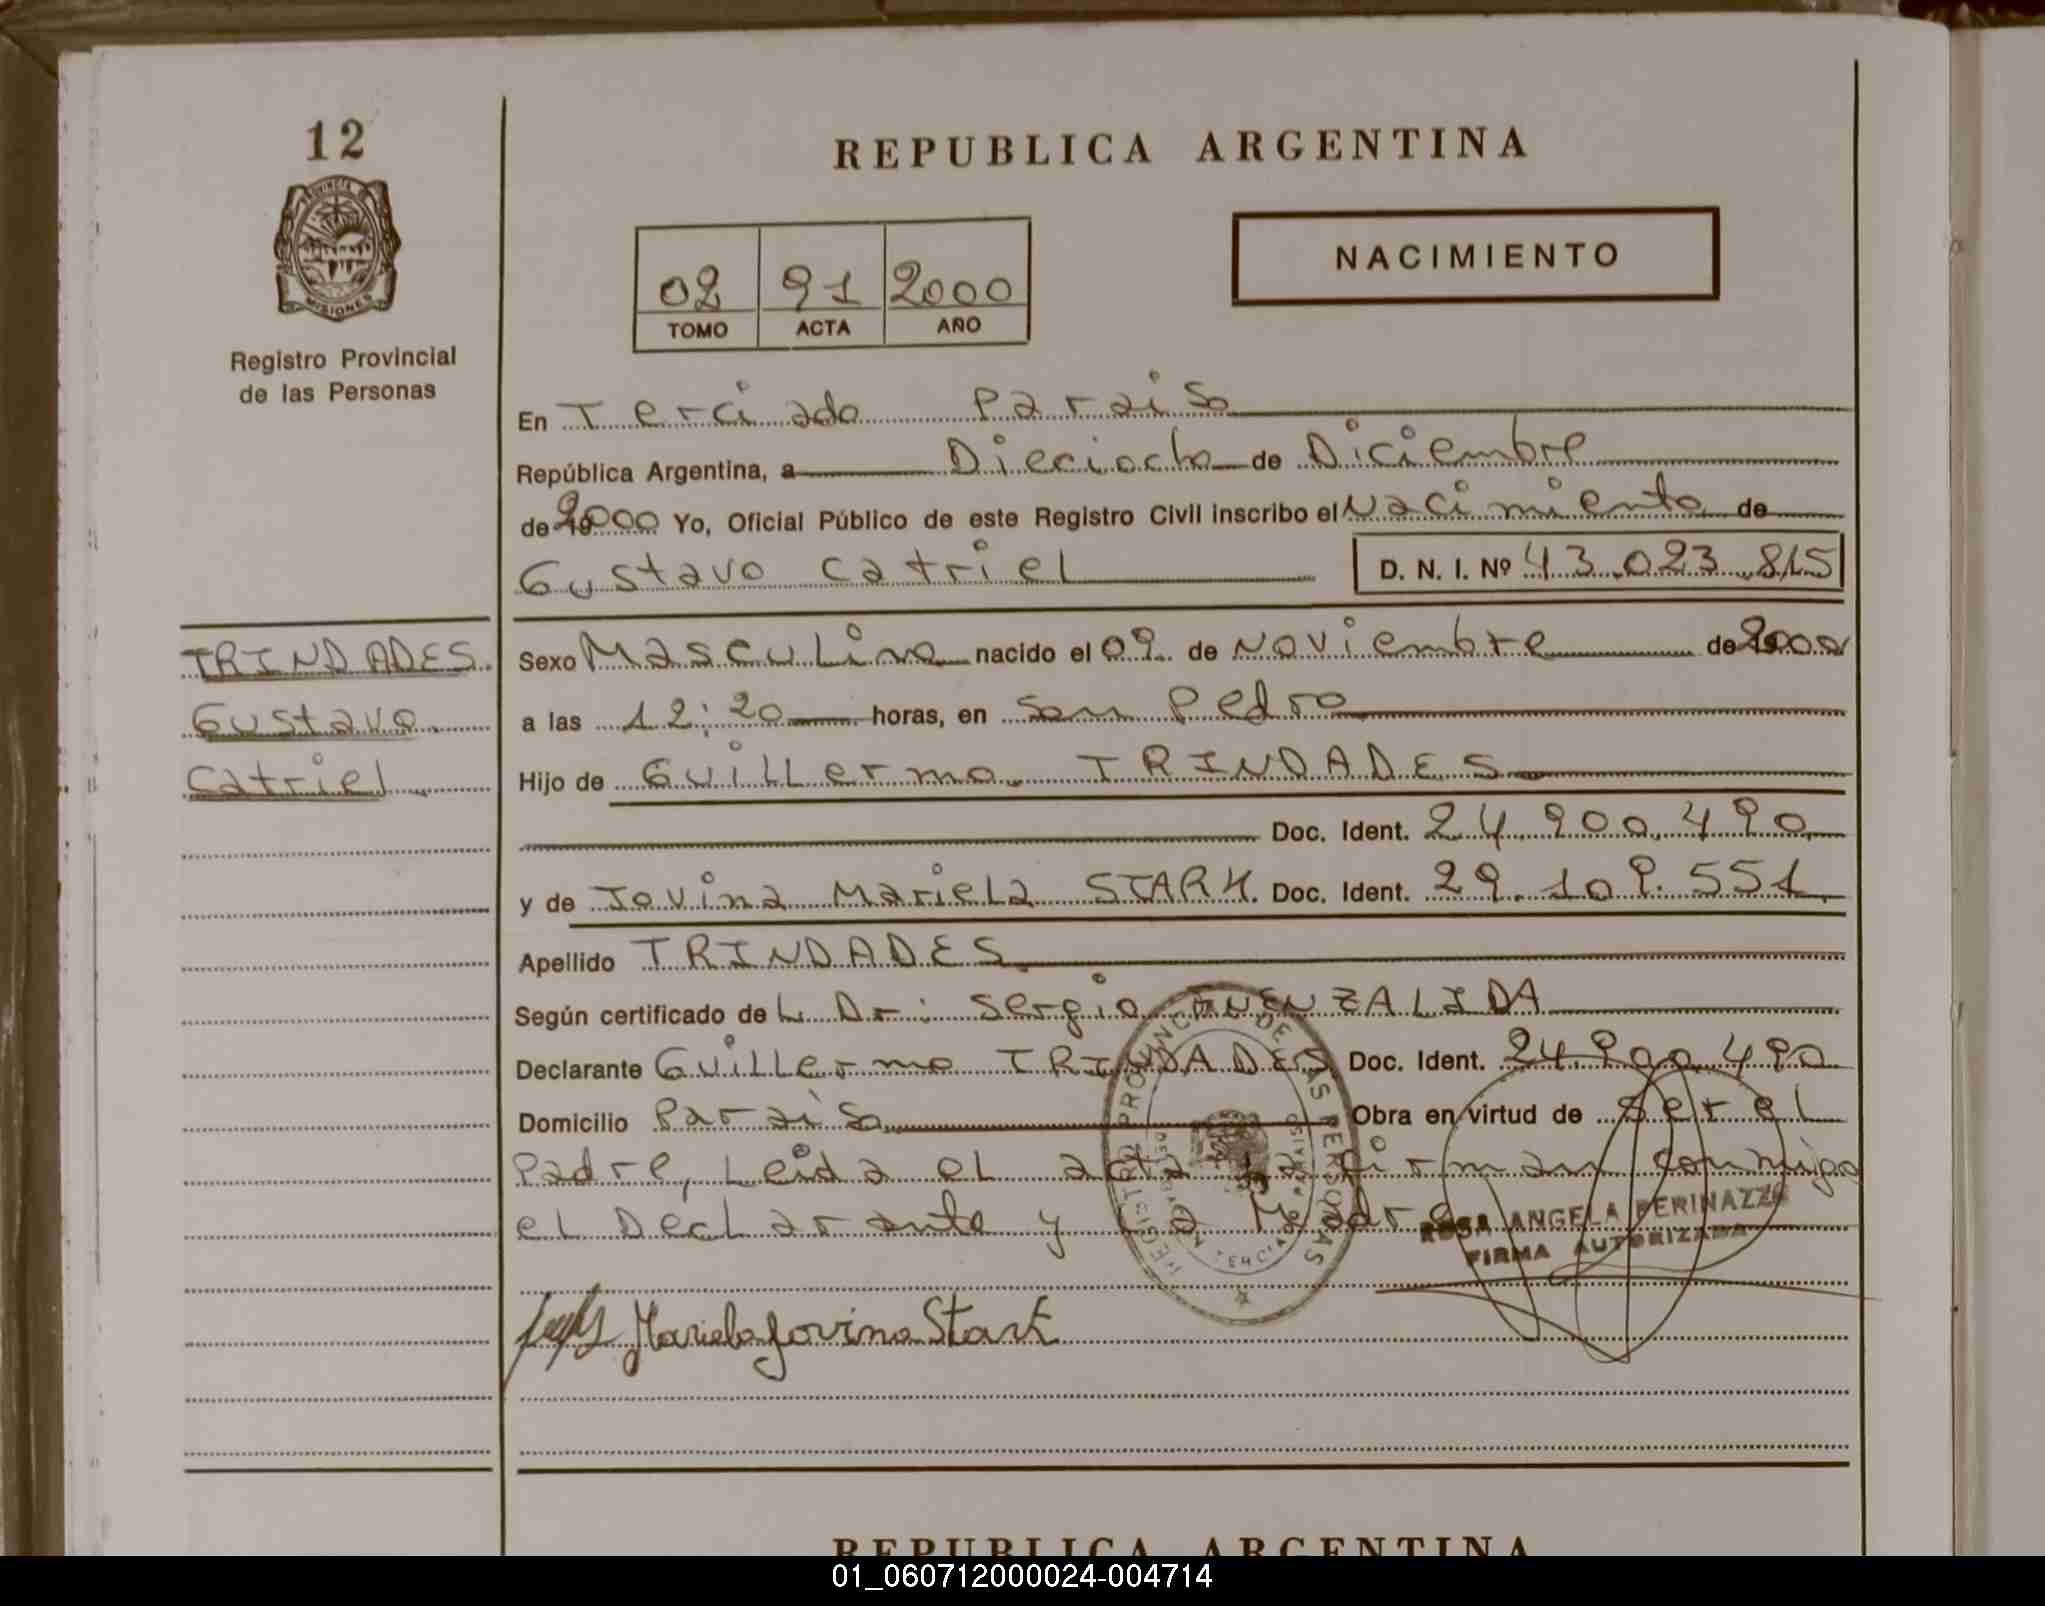 12
PROVINCIA DE
MISIONES
Registro Provincial
de las Personas
REPUBLICA ARGENTINA
NACIMIENTO
02 91 2000
TOMO ACTA AÑO
En Terciado Paraiso
República Argentina, a Dieciocho de Diciembre
de 2000 Yo, Oficial Público de este Registro Civil inscribo el Nacimiento de
Gustavo Catriel D. N. I. Nº 43.023.815
TRINDADES
Gustavo
Catriel
Sexo Masculino nacido el 09 de Noviembre de 2000
a las 12:20 horas, en San Pedro
Hijo de Guillermo TRINDADES
Doc. Ident. 24.900.490
y de Jovina Mariela STARK. Doc. Ident. 29.109.551
Apellido TRINDADES
Según certificado de L Dr: Sergio FUENZALIDA
Declarante Guillermo TRINDADES Doc. Ident. 24.900.490
Domicilio Paraiso Obra en virtud de ser el
Padre, Leida el acta La firman conmigo
el Declarante y La Madre
REGISTRO PROVINCIAL DE LAS PERSONAS
ROSA ANGELA PERINAZZO
FIRMA AUTORIZADA
Mariela Jovina Stark
REPUBLICA ARGENTINA
01_060712000024-004714